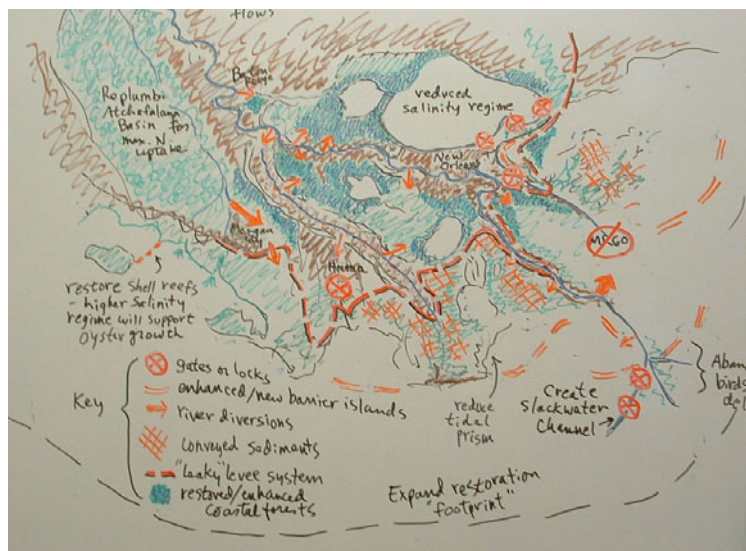 flows
Baton
Rouge
Replumb
Atchafalaya
Basin for
max. N
uptake
reduced
salinity regime
New
Orleans
Morgan
City
MRGO
Houma
restore shell reefs
- higher salinity
regime will support
oyster growth
Key
gates or locks
enhanced/new barrier islands
river diversions
conveyed sediments
"leaky" levee system
restored/enhanced
coastal forests
reduce
tidal
prism
Create
Slackwater
Channel
Aban
birds
del
Expand restoration
"footprint"